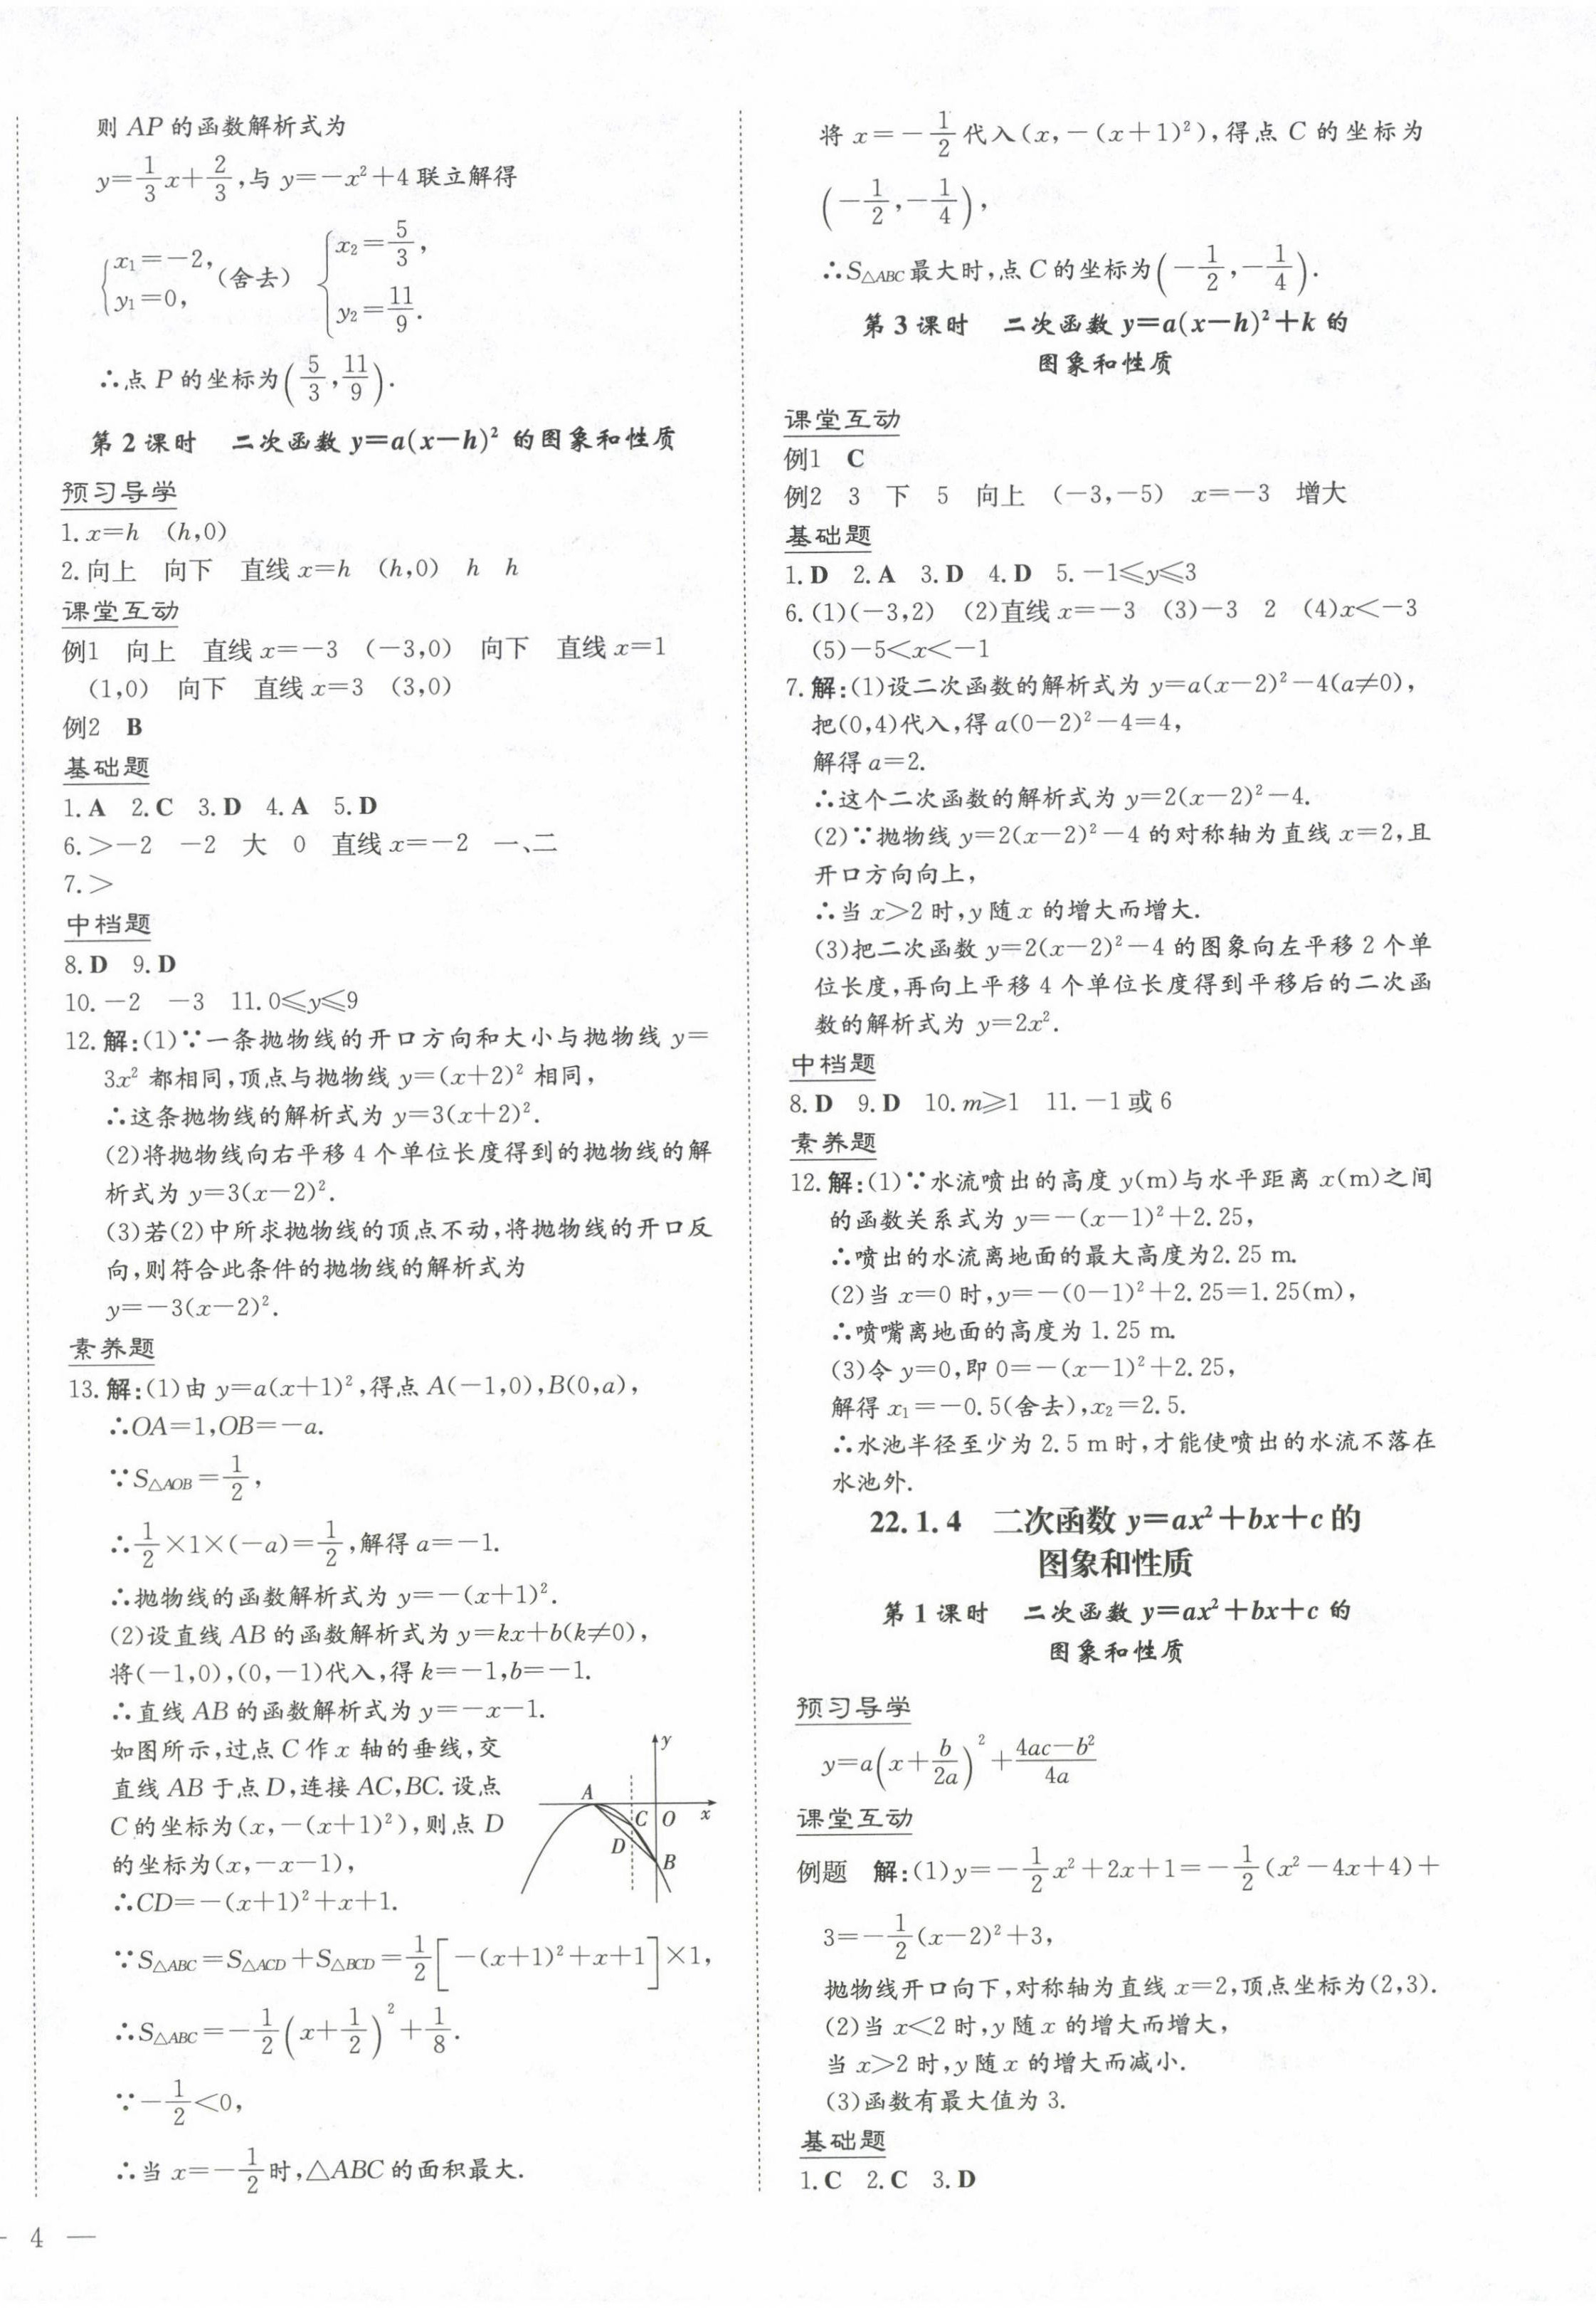 则 AP 的函数解析式为
y=1/3x+2/3,与 y=-x²+4 联立解得
{x₁=-2, y₁=0,(舍去) {x₂=5/3, y₂=11/9.
∴点 P 的坐标为(5/3,11/9).
第2课时 二次函数 y=a(x-h)² 的图象和性质
预习导学
1. x=h (h,0)
2. 向上 向下 直线 x=h (h,0) h h
课堂互动
例1 向上 直线 x=-3 (-3,0) 向下 直线 x=1
(1,0) 向下 直线 x=3 (3,0)
例2 B
基础题
1. A 2. C 3. D 4. A 5. D
6. >-2 -2 大 0 直线 x=-2 一、二
7. >
中档题
8. D 9. D
10. -2 -3 11. 0≤y≤9
12. 解:(1)∵一条抛物线的开口方向和大小与抛物线 y=
3x² 都相同,顶点与抛物线 y=(x+2)² 相同,
∴这条抛物线的解析式为 y=3(x+2)².
(2)将抛物线向右平移 4 个单位长度得到的抛物线的解
析式为 y=3(x-2)².
(3)若(2)中所求抛物线的顶点不动,将抛物线的开口反
向,则符合此条件的抛物线的解析式为
y=-3(x-2)².
素养题
13. 解:(1)由 y=a(x+1)²,得点 A(-1,0),B(0,a),
∴OA=1,OB=-a.
∵S△AOB=1/2,
∴1/2×1×(-a)=1/2,解得 a=-1.
∴抛物线的函数解析式为 y=-(x+1)².
(2)设直线 AB 的函数解析式为 y=kx+b(k≠0),
将(-1,0),(0,-1)代入,得 k=-1,b=-1.
∴直线 AB 的函数解析式为 y=-x-1.
如图所示,过点 C 作 x 轴的垂线,交
直线 AB 于点 D,连接 AC,BC. 设点
C 的坐标为(x,-(x+1)²),则点 D
的坐标为(x,-x-1),
∴CD=-(x+1)²+x+1.
y
A
C
O
x
D
B
∵S△ABC=S△ACD+S△BCD=1/2[-(x+1)²+x+1]×1,
∴S△ABC=-1/2(x+1/2)²+1/8.
∵-1/2<0,
∴当 x=-1/2时,△ABC 的面积最大.
4 —
将 x=-1/2代入(x,-(x+1)²),得点 C 的坐标为
(-1/2,-1/4),
∴S△ABC最大时,点 C 的坐标为(-1/2,-1/4).
第3课时 二次函数 y=a(x-h)²+k 的
图象和性质
课堂互动
例1 C
例2 3 下 5 向上 (-3,-5) x=-3 增大
基础题
1. D 2. A 3. D 4. D 5. -1≤y≤3
6. (1)(-3,2) (2)直线 x=-3 (3)-3 2 (4)x<-3
(5)-5<x<-1
7. 解:(1)设二次函数的解析式为 y=a(x-2)²-4(a≠0),
把(0,4)代入,得 a(0-2)²-4=4,
解得 a=2.
∴这个二次函数的解析式为 y=2(x-2)²-4.
(2)∵抛物线 y=2(x-2)²-4 的对称轴为直线 x=2,且
开口方向向上,
∴当 x>2 时,y 随 x 的增大而增大.
(3)把二次函数 y=2(x-2)²-4 的图象向左平移 2 个单
位长度,再向上平移 4 个单位长度得到平移后的二次函
数的解析式为 y=2x².
中档题
8. D 9. D 10. m≥1 11. -1 或 6
素养题
12. 解:(1)∵水流喷出的高度 y(m)与水平距离 x(m)之间
的函数关系式为 y=-(x-1)²+2.25,
∴喷出的水流离地面的最大高度为2.25 m.
(2)当 x=0 时,y=-(0-1)²+2.25=1.25(m),
∴喷嘴离地面的高度为 1.25 m.
(3)令 y=0,即 0=-(x-1)²+2.25,
解得 x₁=-0.5(舍去),x₂=2.5.
∴水池半径至少为 2.5 m 时,才能使喷出的水流不落在
水池外.
22.1.4 二次函数 y=ax²+bx+c 的
图象和性质
第1课时 二次函数 y=ax²+bx+c 的
图象和性质
预习导学
y=a(x+b/2a)²+(4ac-b²)/4a
课堂互动
例题 解:(1)y=-1/2x²+2x+1=-1/2(x²-4x+4)+
3=-1/2(x-2)²+3,
抛物线开口向下,对称轴为直线 x=2,顶点坐标为(2,3).
(2)当 x<2 时,y 随 x 的增大而增大,
当 x>2 时,y 随 x 的增大而减小.
(3)函数有最大值为 3.
基础题
1. C 2. C 3. D